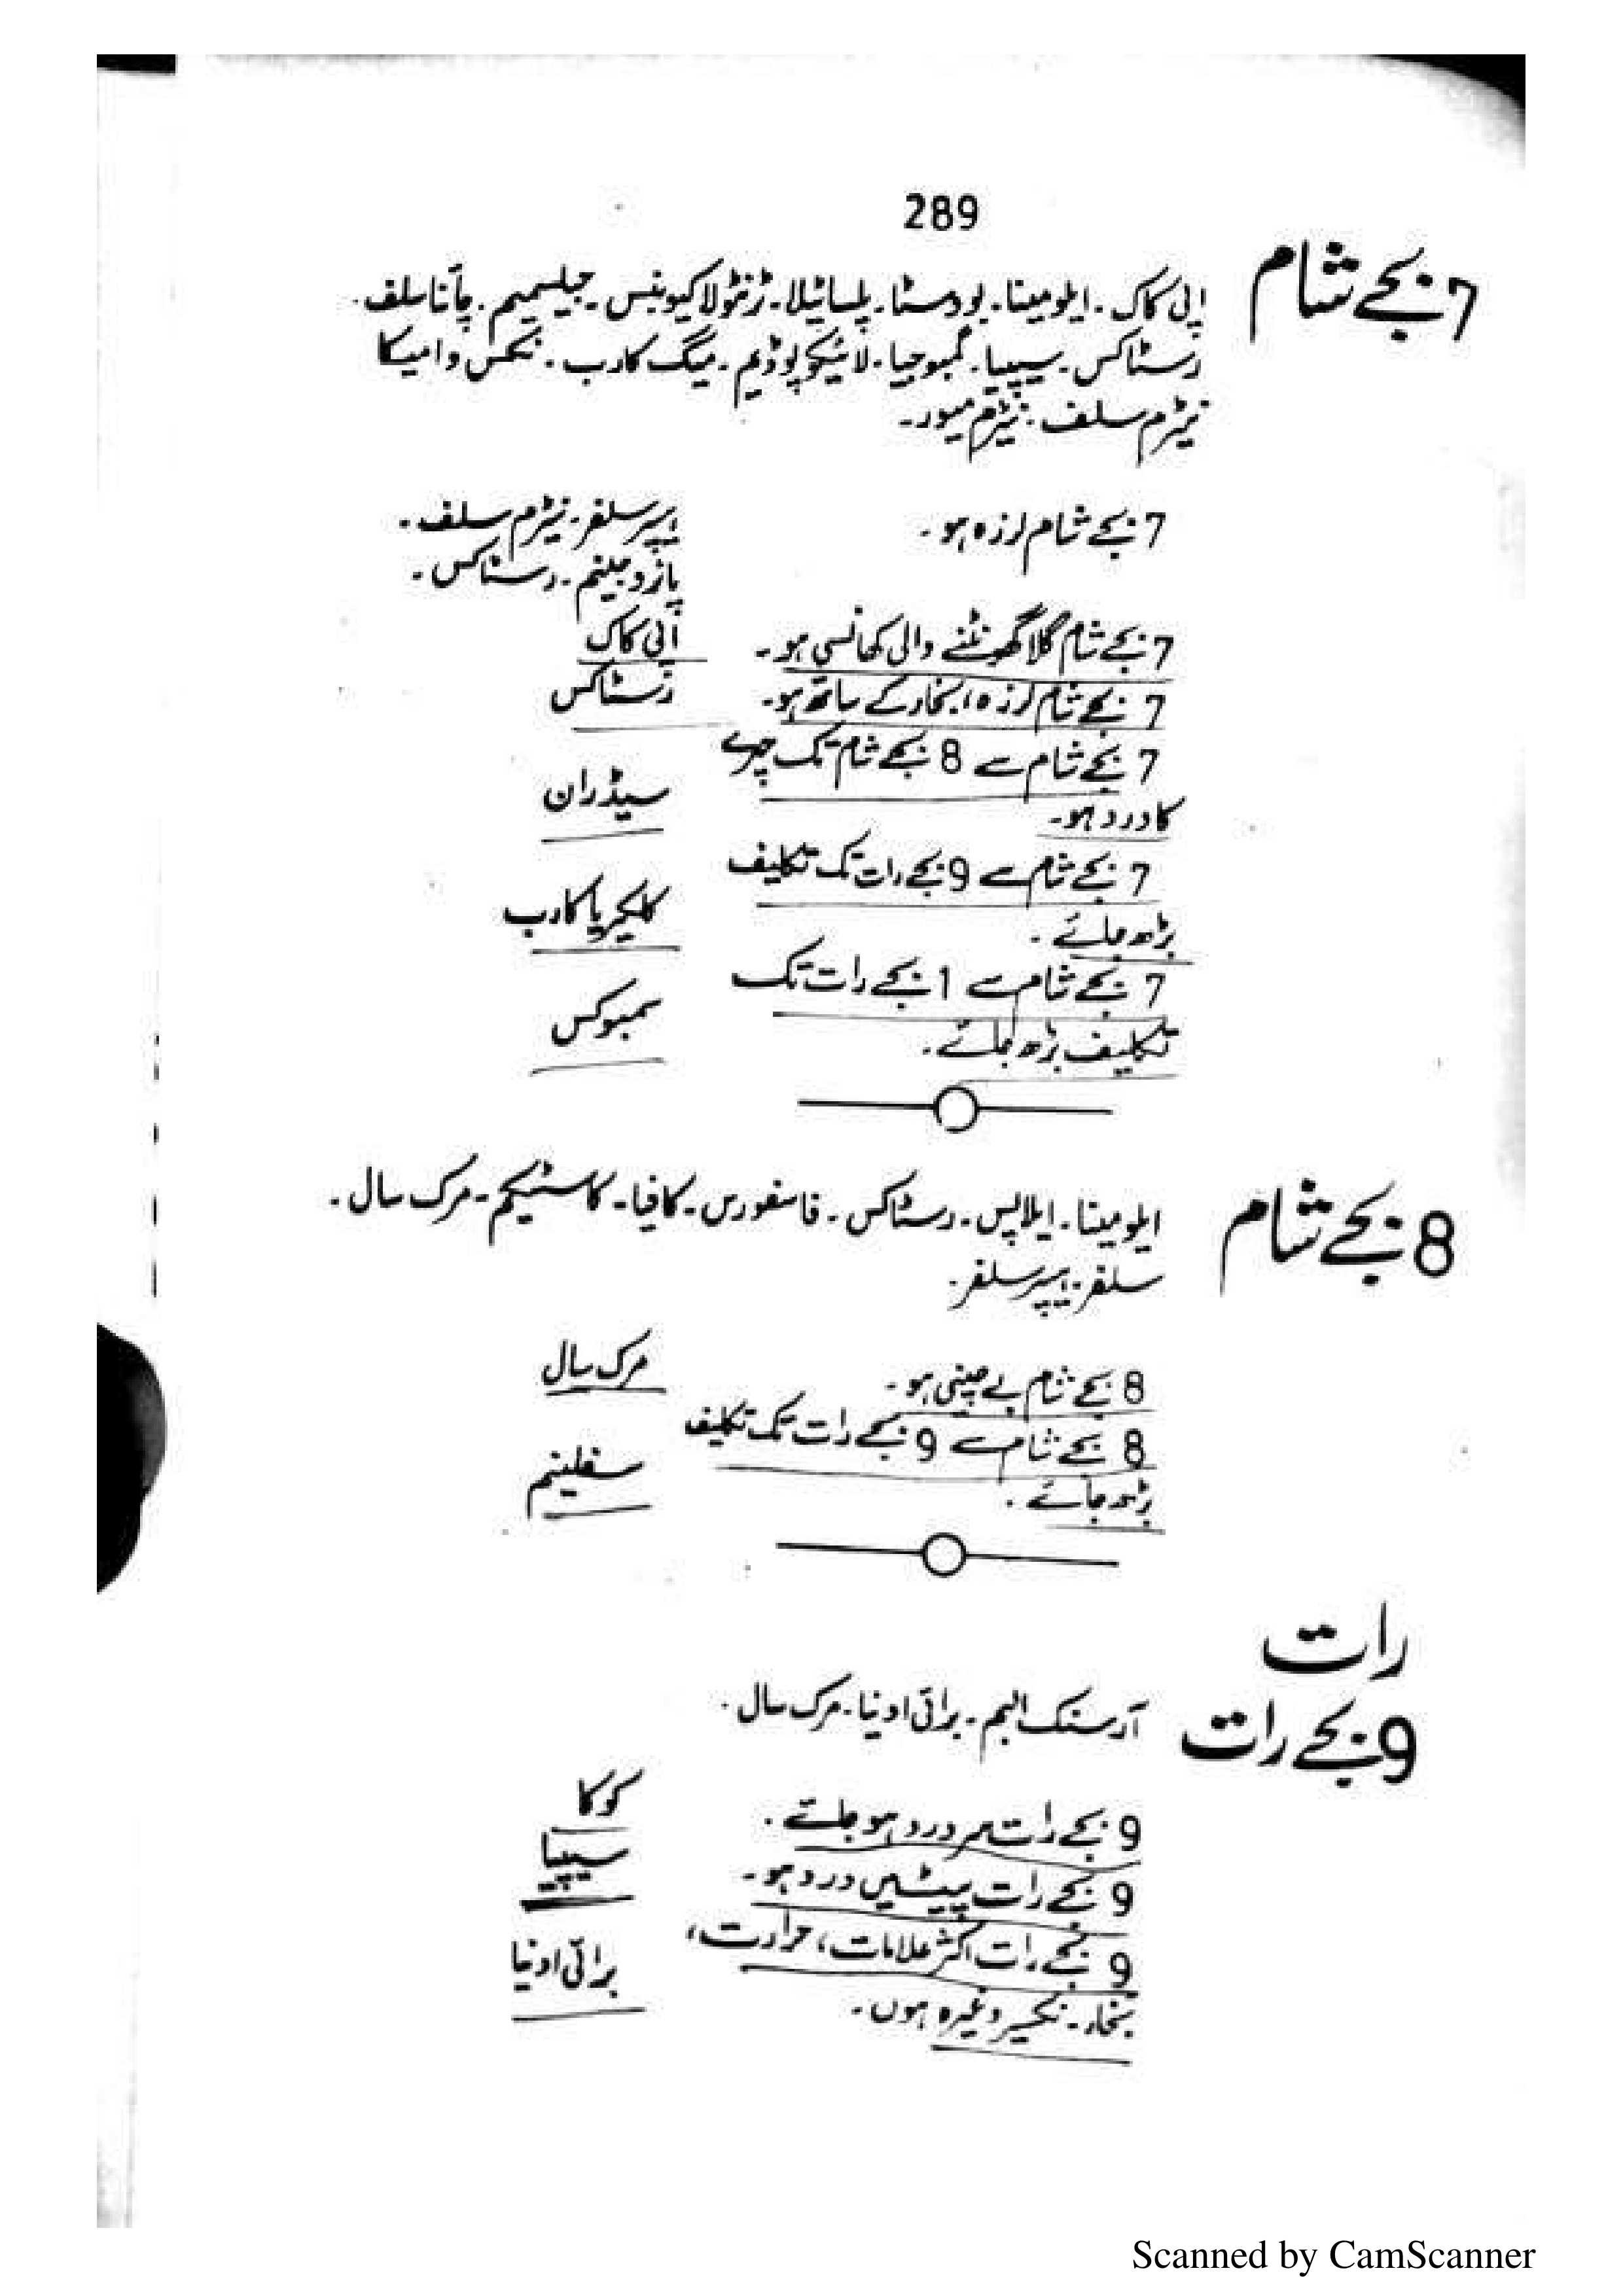 289
7 بجے شام
اپی کاک۔ ایلومینا۔ بودسٹا۔ پلساٹیلا۔ رٹنٹولا کیوبنس۔ جیلسیمیم۔ چائنا سلف۔
رسٹاکس۔ سیپیا۔ گمبوجیا۔ لائیکوپوڈیم۔ میگ کارب۔ نکس وامیکا
نیٹرم سلف۔ نیٹرم میور۔
7 بجے شام لرزہ ہو۔ ہیپر سلفر۔ نیٹرم سلف۔
پائروجینم۔ رسٹاکس۔
7 بجے شام گلا گھونٹنے والی کھانسی ہو۔ اپی کاک
7 بجے شام لرزہ، بخار کے ساتھ ہو۔ رسٹاکس
7 بجے شام سے 8 بجے شام تک چہرے
کا درد ہو۔ سیڈران
7 بجے شام سے 9 بجے رات تک تکلیف
بڑھ جائے۔ کلکیریا کارب
7 بجے شام سے 1 بجے رات تک
تکلیف بڑھ جائے۔ سمبوکس
8 بجے شام
ایلومینا۔ ایلاپس۔ رسٹاکس۔ فاسفورس۔ کافیا۔ کاسٹیکم۔ مرک سال۔
سلفر۔ ہیپر سلفر۔
8 بجے شام بے چینی ہو۔ مرک سال
8 بجے شام سے 9 بجے رات تک تکلیف
بڑھ جائے۔ سفلینم
رات
9 بجے رات
آرسنک البم۔ برائی اونیا۔ مرک سال۔
9 بجے رات سر درد ہو جائے۔ کوکا
9 بجے رات پیٹ میں درد ہو۔ سیپیا
9 بجے رات اکثر علامات، حرارت،
بخار۔ نکسیر وغیرہ ہوں۔ برائی اونیا
Scanned by CamScanner